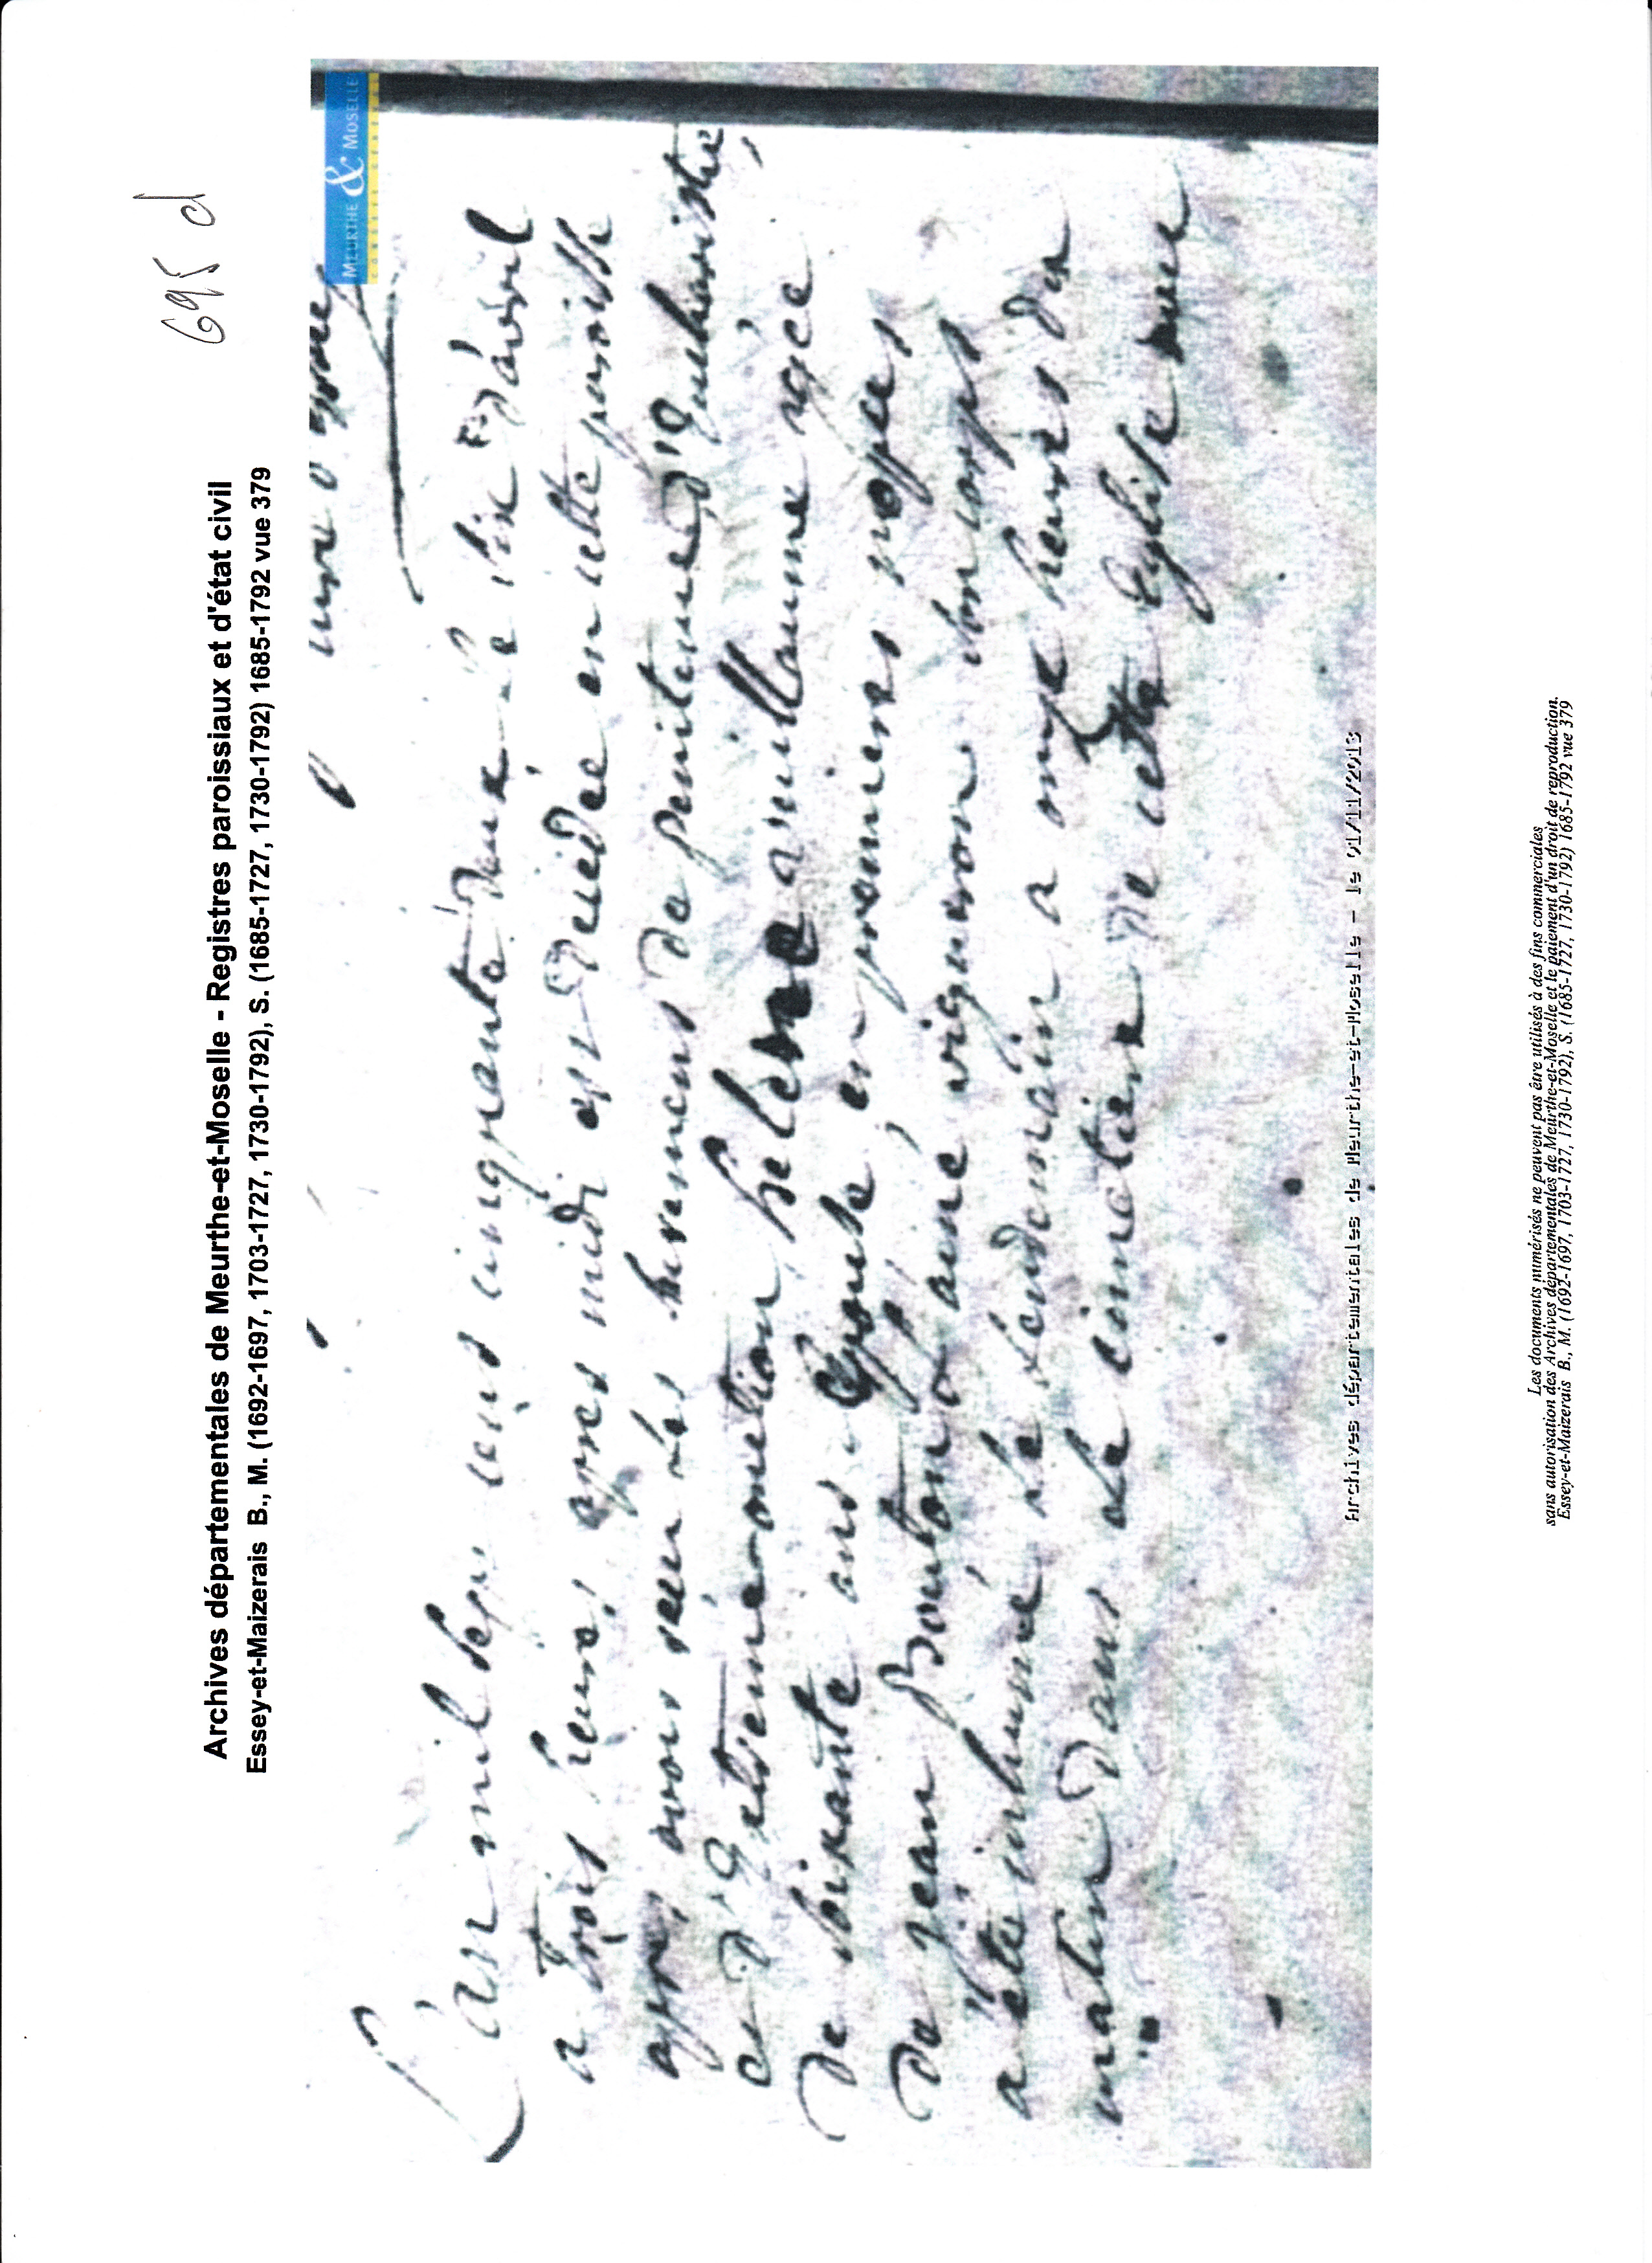 695 d
Archives départementales de Meurthe-et-Moselle - Registres paroissiaux et d'état civil
Essey-et-Maizerais B., M. (1692-1697, 1703-1727, 1730-1792), S. (1685-1727, 1730-1792) 1685-1792 vue 379
MEURTHE & MOSELLE
L'an mil sept cent cinquante deux le six d'avril
a trois heures apres midi est decedée en cette paroisse
apres avoir recu les sacremens de penitence d'Eucharistie
et d'extremeonction helene vuillaume agée
de soixante ans Epouse en premieres nopces
de jean Bouton vigneron son corps
a été inhumé le lendemain a onze heures du
matin dans le cimetiere de cette Eglise avec
Archives départementales de Meurthe-et-Moselle - le 01/11/2013
Les documents numérisés ne peuvent pas être utilisés à des fins commerciales
sans autorisation des Archives départementales de Meurthe-et-Moselle et le paiement d'un droit de reproduction.
Essey-et-Maizerais B., M. (1692-1697, 1703-1727, 1730-1792), S. (1685-1727, 1730-1792) 1685-1792 vue 379